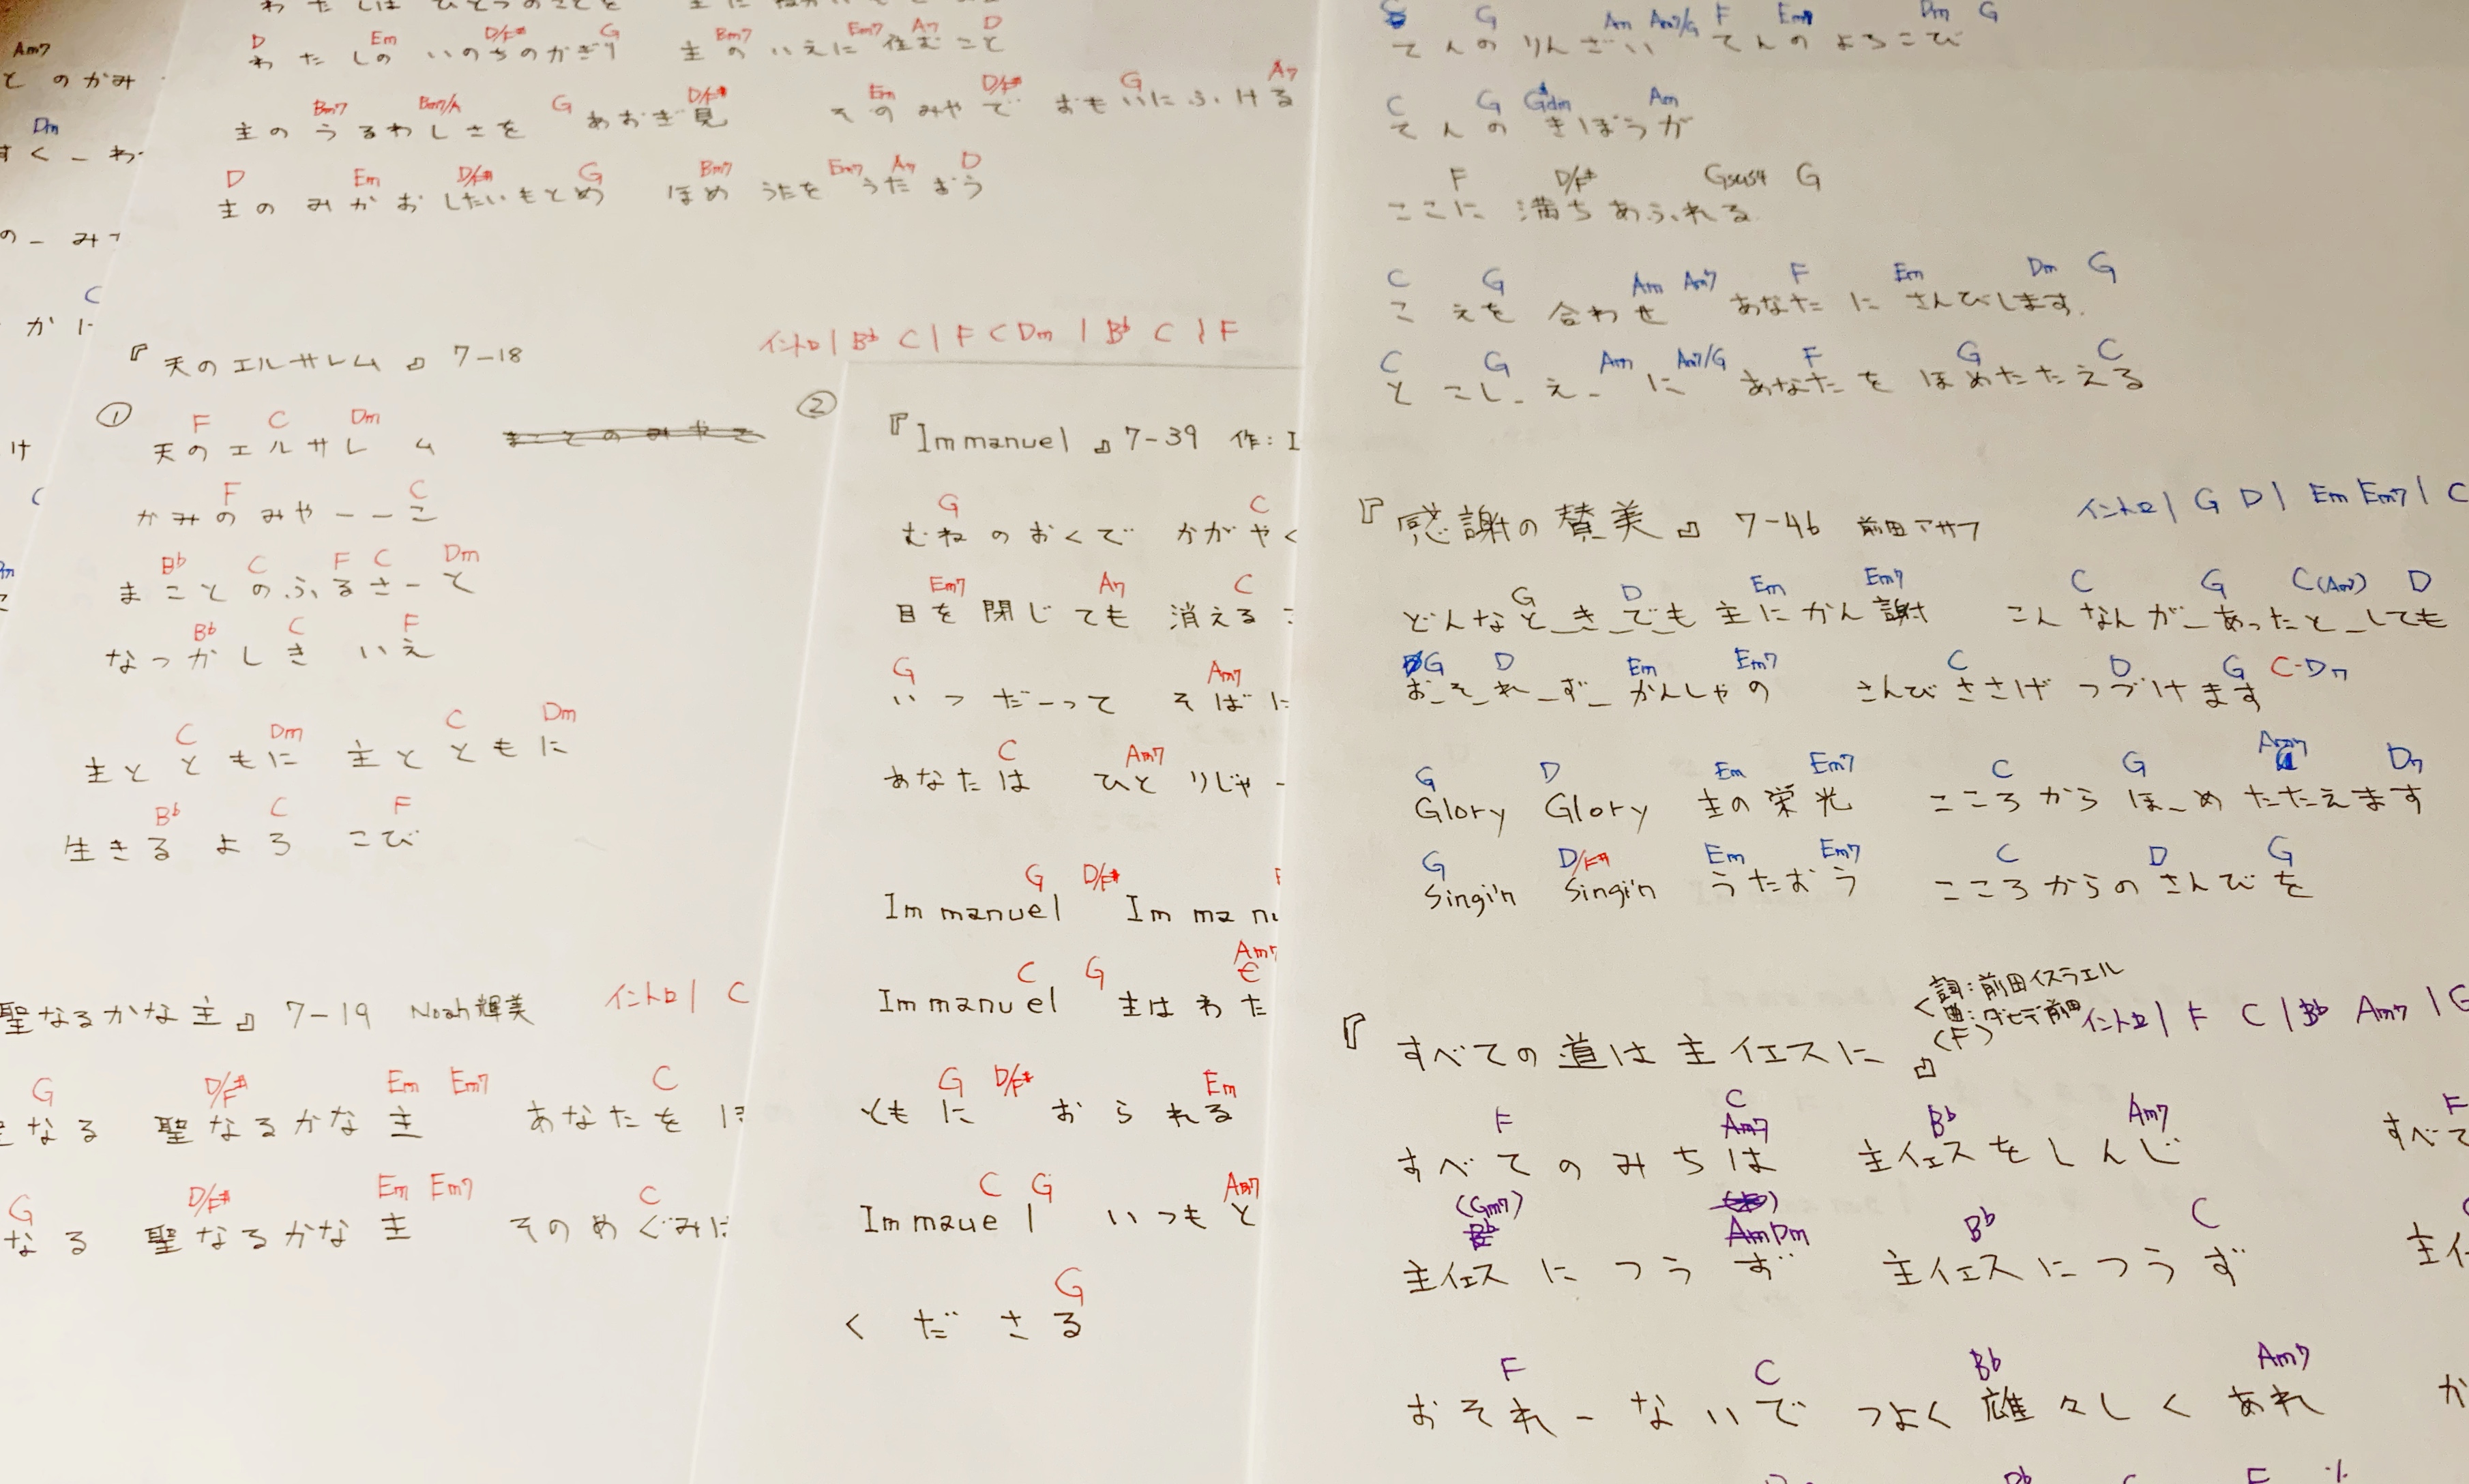 Am7
とのかみ
Dm
すくーわ
のーみ
C
かに
け
C
D Em D/F# G Bm7 Em7 A7 D
わたしの いのちのかぎり 主のいえに住むこと
Bm7 Bm7/A G D/F# Em D/F# G A7
主のうるわしさを あおぎ見 そのみやで おもいにふける
D Em D/F# G Bm7 Em7 A7 D
主のみかおしたいもとめ ほめうたをうたおう
『天のエルサレム』7-18
イントロ| B♭ C | F C Dm | B♭ C | F
①
F C Dm
天のエルサレム まことのみやこ
F C
かみのみやーーこ
B♭ C F C Dm
まことのふるさーと
B♭ C F
なつかしき いえ
C Dm C Dm
主とともに 主とともに
B♭ C F
生きるよろこび
聖なるかな主』7-19 Noah輝美 イントロ| C
G D/F# Em Em7 C
なる 聖なるかな主 あなたをほ
G D/F# Em Em7 C
なる 聖なるかな主 そのめぐみは
②
『Immanuel』7-39 作:I
G C
むねのおくで かがやく
Em7 A7 C
目を閉じても 消える
G Am7
いつだーって そばに
C Am7
あなたは ひとりじゃー
G D/F#
Immanuel Imman
C G Am7
C
Immanuel 主はわた
G D/F# Em
ともに おられる
C G Am7
Immauel いつもと
G
くださる
G Am Am7/G F Em7 Dm G
てんのりんざい てんのよろこび
C G G#dim Am
てんのきぼうが
F D/F# Gsus4 G
ここに満ちあふれる
C G Am Am7 F Em Dm G
こえを合わせ あなたにさんびします.
C G Am Am7/G F G C
とこし-え-に あなたをほめたたえる
『感謝の賛美』7-46 前田アサフ イントロ| G D | Em Em7 | C
G D Em Em7 C G C(Am7) D
どんなと_き_でも主にかん謝 こんなんが_あったと_しても
G D Em Em7 C D G C-D7
お_そ_れ_ず_かんしゃの さんびささげつづけます
G D Em Em7 C G Am7 D7
Glory Glory 主の栄光 こころからほ_めたたえます
G D/F# Em Em7 C D G
Singi'n Singi'n うたおう こころからのさんびを
詞:前田イスラエル
曲:ダビデ前田
(F)
『すべての道は主イエスに』 イントロ| F C | B♭ Am7 | G
F C B♭ Am7 F
Am7
すべてのみちは 主イエスをしんじ すべて
(Gm7)
B♭ AmDm B♭ C
主イエスにつうず 主イエスにつうず 主イ
F C B♭ Am7
おそれーないで つよく雄々しくあれ か
B♭ C F